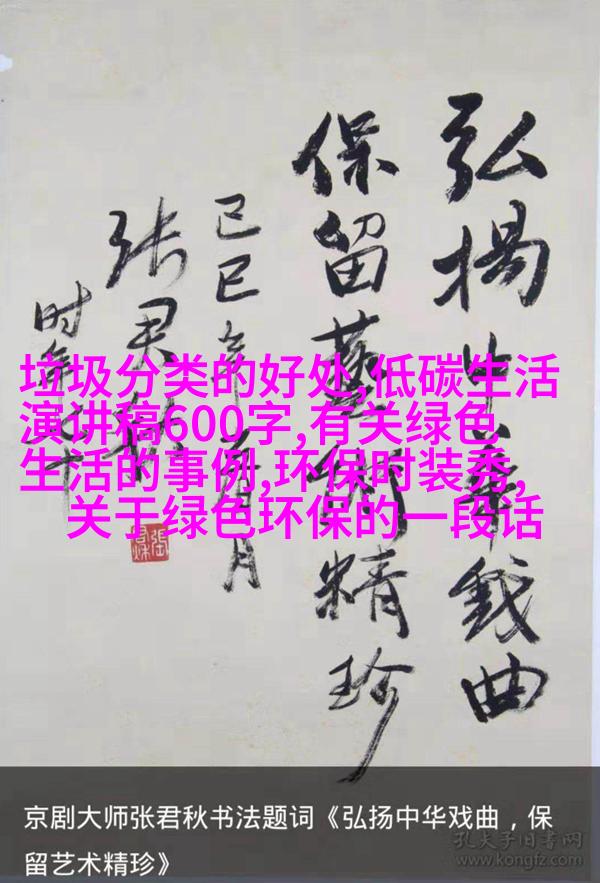 弘揚中華戲曲
保留藝術精珍
己巳年
张君秋
时年七十
垃圾分类的好处,低碳生活
演讲稿600字,有关绿色
生活的事例,环保时装秀,
关于绿色环保的一段话
京剧大师张君秋书法题词《弘扬中华戏曲，保
留艺术精珍》
孔夫子旧书网
www.kongfz.com